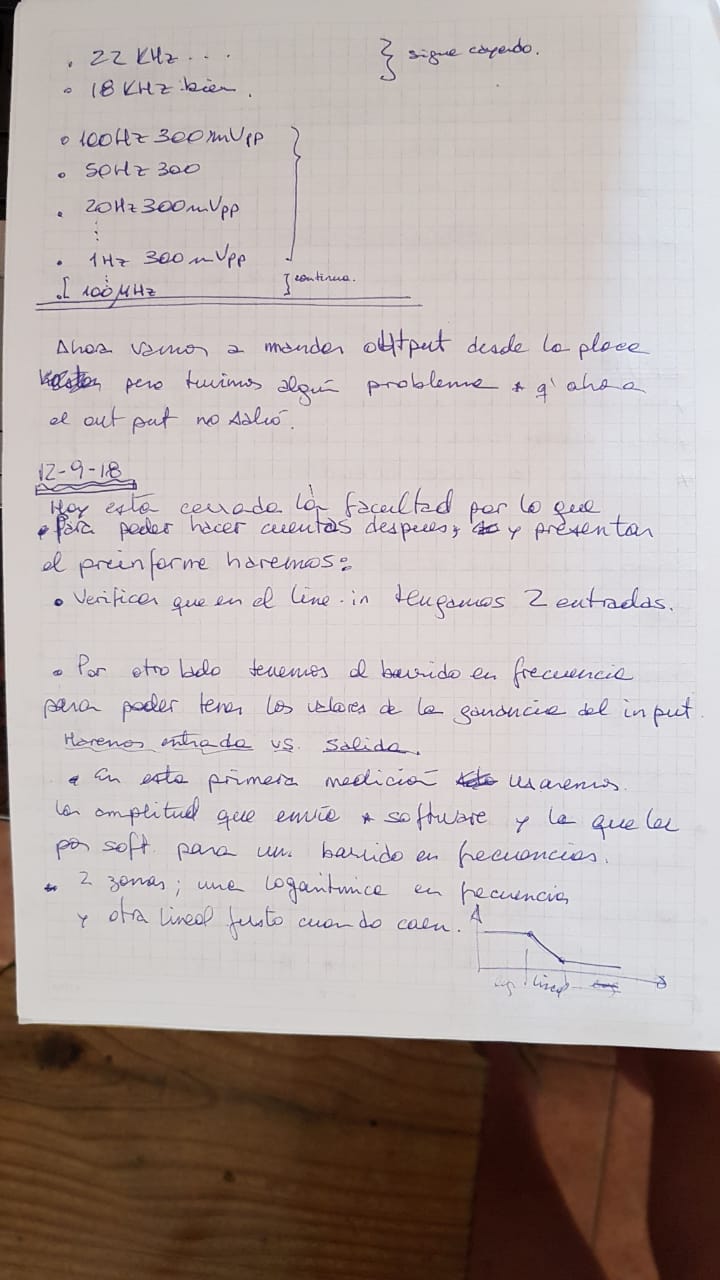 • 22 KHz ... } sigue cayendo.
• 18 KHz bien.
• 100Hz 300mVpp
• 50Hz 300
• 20Hz 300mVpp
⋮
• 1Hz 300mVpp
[ 100 µHz } continua.
Ahora vamos a mandar output desde la placa
pero tuvimos algún problema q' ahora
el out put no salió.
12-9-18
Hoy esta cerrada la facultad por lo que
• Para poder hacer cuentas despues, y presentar
el preinforme haremos:
• Verificar que en el line-in tengamos 2 entradas.
• Por otro lado tenemos el barrido en frecuencia
para poder tener los valores de la ganancia del input.
Haremos entrada vs. salida.
• En esta primera medición usaremos
la amplitud que envíe software y la que lee
por soft. para un barrido en frecuencias.
2 zonas; una logaritmica en frecuencia
y otra lineal justo cuando caen. A
log lineal